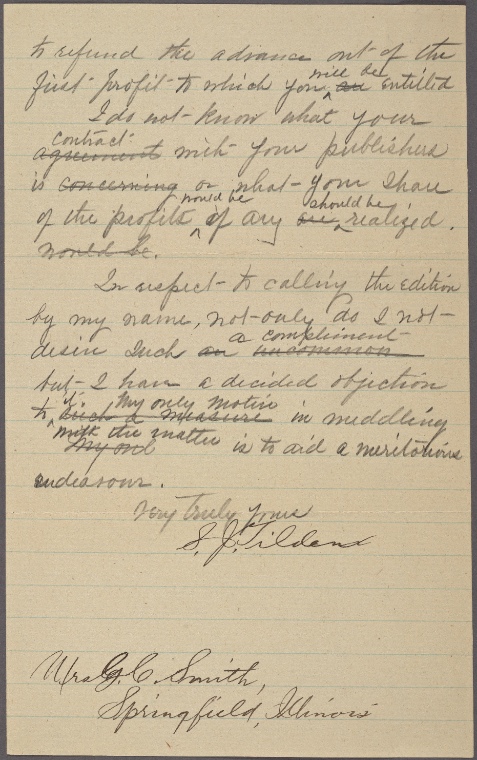 to refund the advance out of the
first profit to which you will be are entitled
I do not know what your
contract
agreement with your publishers
is concerning or what your share
of the profits would be if any are should be realized.
would be.
In respect to calling the edition
by my name, not only do I not
desire such an a compliment uncommon
but I have a decided objection
to it. My only motive such a measure in meddling
with the matter My onl is to aid a meritorious
endeavour.
Very truly yours
S. J. Tilden
Mrs G. C. Smith,
Springfield, Illinois